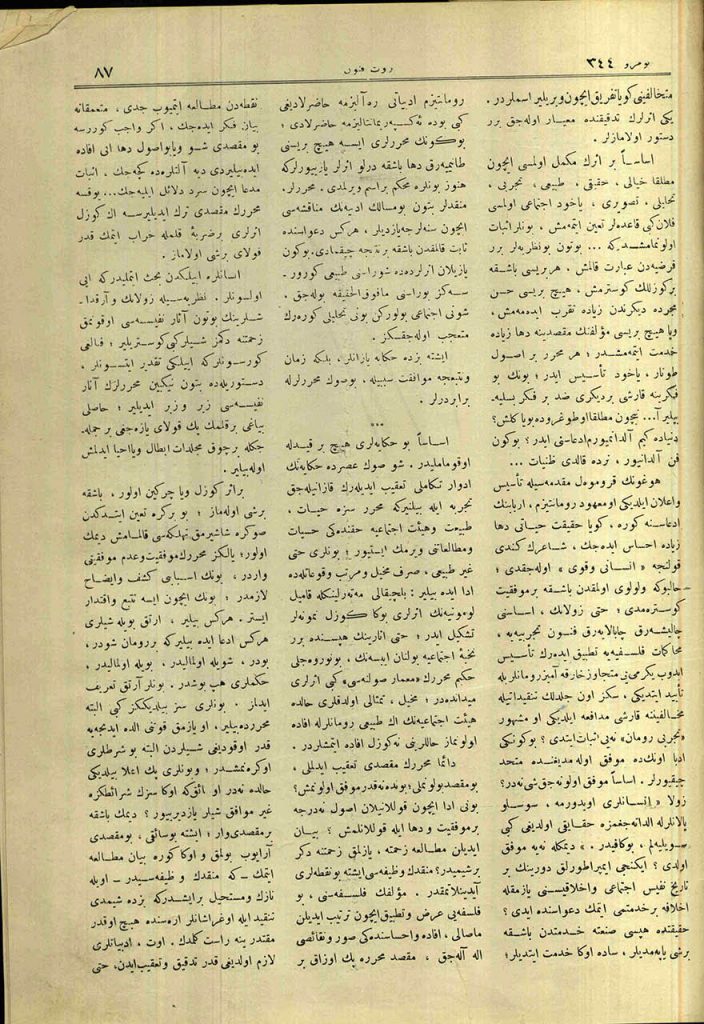 نومرو ٣٤٤
ثروت فنون
٨٧
متخالفینی کویا تفریق ایچون ویریلیر اسملردر .
یکی اثرلرك تدقیقنده معیار اوله‌جق بر
دستور اولامازلر .
اساساً بر اثرك مکمل اولمسی ایچون
مطلقا خیالی ، حقیقی ، طبیعی ، تجربی ،
تحلیلی ، تصویری ، یاخود اجتماعی اولمسی
فلان کبی قاعده‌لر تعین ایتمه‌مش ، بونلر اثبات
اولونمامشدر که ... بوتون بونظریه‌لر بر
فرضیه‌دن عبارت قالمش . هر بریسی باشقه
بر کوزللك کوسترمش ، هیچ بریسی حسن
مجرده دیکرندن زیاده تقرب ایده‌مه‌مش ،
ویا هیچ بریسی مؤلفنك مقصدینه دها زیاده
خدمت ایتمه‌مشدر ؛ هر محرر بر اصول
طوتار ، یاخود تأسیس ایدر ؛ بونك بو
فکرینه قارشی بردیکری ضد بر فکر بسلیه‌
بیلیر آ... نیچون مطلقا اوطوغروده بویاکلش ؟
دنیاده کیم آلدانمیورم ادعاسنی ایدر ؟ بوکون
فن آلدانیور ، نرده قالدی ظنیات ...
هوغونك قروموه‌ل مقدمه‌سیله تأسیس
واعلان ایلدیکی او معهود رومانتیزم ، اربابنك
ادعاسنه کوره ، کویا حقیقت حیاتی دها
زیاده احساس ایده‌جك ، شاعرك کندی
قولنجه « انسانی وقوی » اوله‌جقدی ؛
حالبوکه ولوله‌لی اولمقدن باشقه بر موفقیت
کوستره‌مدی ؛ حتی زولانك ، اساسنی
چالیشه‌رق چابالایه‌رق فنون تجربیه‌یه ،
محاکمات فلسفیه‌یه تطبیق ایده‌رك تأسیس
ایدوب یکرمی‌یی متجاوز خارقه آمیز رومانلریله
تأیید ایتدیکی ، سکز اون جلدلك تنقیداتیله
مخالفینه قارشی مدافعه ایلدیکی او مشهور
«تجربی رومان» نه‌یی اثبات ایتدی ؟ بوکونکی
ادبا اونك‌ده موفق اوله‌مدیغنده متحد
چیقیورلر . اساساً موفق اولونه‌جق شی نه‌در ؟
زولا « انسانلری اویدورمه ، سوسلو
یالانلرله آلدانه‌جغمزه حقایقی اولدیغی کبی
سویلیه‌لم ، بوکافیدر . » دیمکله نه‌یه موفق
اولدی ؟ ایکنجی ایمپراطورلق دورینك بر
تاریخ نفیس اجتماعی واخلاقیسنی یازمقله
اخلاقه بر خدمتمی ایتمك دعواسنده ایدی ؟
حقیقتده هپسی صنعته خدمتدن باشقه
برشی یاپه‌مدیلر ، ساده اوکا خدمت ایتدیلر ؛
رومانتیزم ادبیاتی ره‌آلیزمه حاضرلادیغی
کبی بوده نه‌کسپه‌ریمانتالیزمه حاضرلادی ؛
بوکونك محررلری ایسه هیچ بریسنی
طانیمیه‌رق دها باشقه درلو اثرلر یازییورلرکه
هنوز بونلره محکم بر اسم ویرلمدی . محررلر .
منقدلر بتون بومسالك ادبیه‌نك مناقشه‌سی
ایچون سنه‌لرجه یازدیلر ، هرکس دعواسنده
ثابت قالمقدن باشقه بر نتیجه چیقمادی . بوکون
یازیلان اثرلرده ده شوراسی طبیعی کورور .
سه‌کز بوراسی مافوق الحقیقه بوله‌جق ،
شونی اجتماعی بولورکن بونی تحلیلی کوره‌رك
متعجب اوله‌جقسکز .
ایشته بزده حکایه یازانلر ، بلکه زمان
ونتیجه موافقت سببیله ، بوصوك محررلرله
برابردرلر .
***
اساساً بو حکایه‌لری هیچ بر قیدله
اوقوماملیدر . شو صوك عصرده حکایه‌نك
ادوار تکاملی تعقیب ایدیله‌رك قازانیله‌جق
تجربه ایله بیلنیرکه محرر سزه حیات ،
طبیعت وهیئت اجتماعیه حقنده‌کی حسیات
ومطالعاتنی ویرمك ایستیور ؛ بونلری حتی
غیر طبیعی ، صرف مخیل ومرتب وقوعاتله‌ده
ادا ایده بیلیر : بلچیقالی مه‌ته‌رلینکله قامیل
له‌مونیه‌نك اثرلری بوکا کوزل نمونه‌لر
تشکیل ایدر ؛ حتی آثارینك هپسنده برر
نخبۀ اجتماعیه بولنان ایبسه‌نك ، بونوروه‌جلی
حکیم محررك «معمار صولنه‌س» کبی اثرلری
میدانده‌در ؛ مخیل ، تمثالی اولدقلری حالده
هیئت اجتماعیه‌نك اك طبیعی رومانلرله افاده
اولونماز حاللرینی نه‌کوزل افاده ایتمشلردر .
دائما محررك مقصدی تعقیب ایدلملی ،
بومقصد بولونملی ؛ بونده نه‌قدر موفق اولونمش ؟
بونی ادا ایچون قوللانیلان اصول نه‌درجه
بر موفقیت و دها ایله قوللانلمش ؟ بیان
ایدیلن مطالعه زحمته ، یازلمق زحمتنه دکر
برشیمیدر ؟ منقدك وظیفه‌سی ایشته بونقطه‌لری
آیدینلاتمقدر . مؤلفك فلسفه‌سنی ، بو
فلسفه‌یی عرض و تطبیق ایچون ترتیب ایدیلن
ماصالی ، افاده واحساسنده‌کی صور ونقائصی
اله آله‌جق ، مقصد محرره پك اوزاق بر
نقطه‌دن مطالعه ایتمیوب جدی ، متعمقانه
بیان فکر ایده‌جك ، اکر واجب کوررسه
بو مقصدی شو ویابواصول دها ایی افاده
ایده‌بیلیردی دیه آلتلره‌ده کچه‌جك ، اثبات
مدعا ایچون سرد دلائل ایلیه‌جك ... یوقسه
محررك مقصدی ترك ایدیلیرسه اك کوزل
اثرلری بر ضربۀ قلمله خراب ایتمك قدر
قولای برشی اولاماز .
اسانلره ایبلکدن بحث ایتملیدرکه ایی
اولسونلر . نظریه‌سیله زولانك و آرقدا .
شلرینك بوتون آثار نفیسه‌سی اوقونمق
زحمتنه دکمز شیلر کبی کوستریلیر ؛ فنالغی
کورسونلرکه ایبلکی تقدیر ایتسونلر ،
دستوریله‌ده بتون نیکبین محررلرك آثار
نفیسه‌سی زیر وزبر ایدیلیر ؛ حاصلی
بیاغی بر قلمك پك قولای یازه‌جغی بر جمله .
جکله برچوق مجلدات ابطال ویا احیا ایدلمش
اوله‌بیلیر .
بر اثر کوزل ویا چرکین اولور ، باشقه
برشی اوله‌ماز ؛ بو بر کره تعین ایتدکدن
صوکره شاشیرمق تهلکه‌سی قالمامش دیمك
اولور ؛ یالکز محررك موفقیت وعدم موفقیتی
واردر ، بونك اسبابنی کشف وایضاح
لازمدر ؛ بونك ایچون ایسه تتبع واقتدار
ایستر . هرکس بیلیر ، آرتق بویله شیلری
هرکس ادعا ایده بیلیرکه بر رومان شودر ،
بودر ، شویله اولمالیدر ، بویله اولمالیدر ،
حکملری هپ بوشدر . بونلر آرتق تعریف
ایدلمز . بونلری سز بیلدیککز کبی البته
محررده بیلیر ، او یازمق قوتنی الده ایدنجه‌یه
قدر اوقودیغی شیلردن البته بو شرطلری
اوکرنمشدر ؛ وبونلری پك اعلا بیلدیکی
حالده نه‌در او سائق که اوکا سزك شرائطکزه
غیر موافق شیلر یازدیرییور ؟ دیمك باشقه
بر مقصدی وار ؛ ایشته بوسائقی ، بو مقصدی
آرایوب بولمق و اوکا کوره بیان مطالعه
ایتمك — که منقدك وظیفه‌سیدر — اویله
نازك ومستحیل بر ایشدرکه بزده شیمدی
تنقید ایله اوغراشانلر اره‌سنده هیچ اوقدر
مقتدرینه راست کلمدك . اوت ، ادبیاتلری
لازم اولدیغی قدر تدقیق وتعقیب ایدن ، حتی